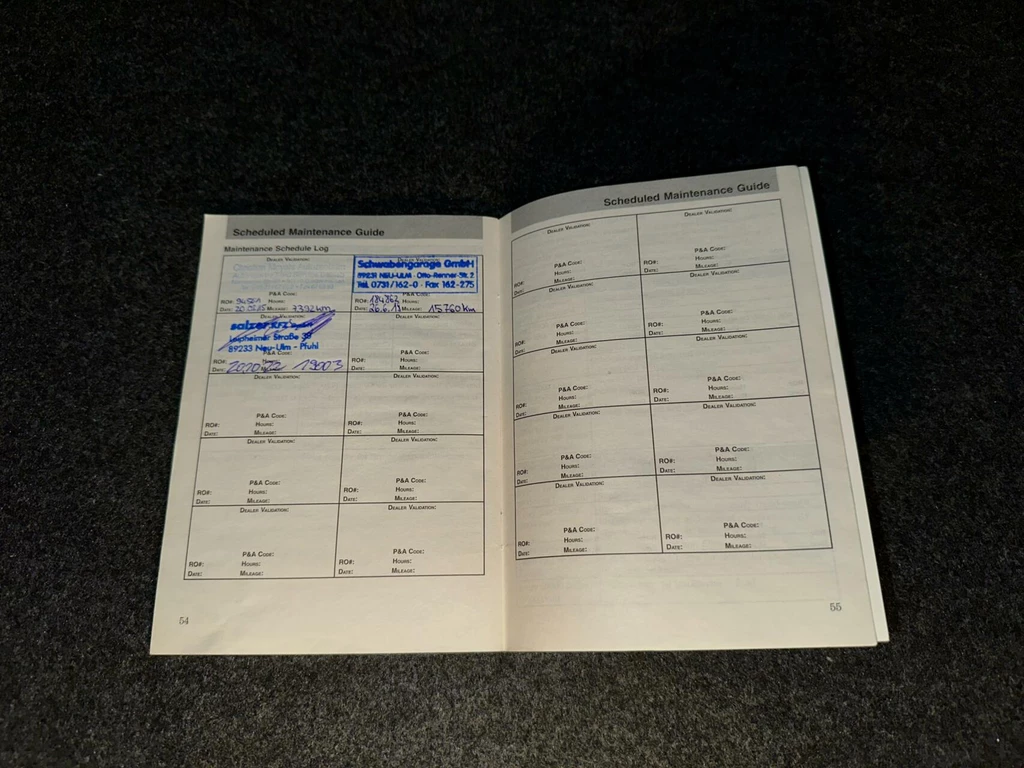 Scheduled Maintenance Guide
Maintenance Schedule Log
DEALER VALIDATION:
P&A CODE:
RO#: 94581 HOURS:
DATE: MILEAGE: 7392km
DEALER VALIDATION:
Schwabengarage GmbH
89231 NEU-ULM · Otto-Renner-Str. 2
Tel. 0731/162-0 · Fax 162-275
P&A CODE:
RO#: 184862 HOURS:
DATE: 26.6.19 MILEAGE: 15760km
DEALER VALIDATION:
salzer KFZ
Leipheimer Straße 30
89233 Neu-Ulm - Pfuhl
P&A CODE:
RO#: HOURS:
DATE: MILEAGE: 19003
DEALER VALIDATION:
P&A CODE:
RO#: HOURS:
DATE: MILEAGE:
DEALER VALIDATION:
P&A CODE:
RO#: HOURS:
DATE: MILEAGE:
DEALER VALIDATION:
P&A CODE:
RO#: HOURS:
DATE: MILEAGE:
DEALER VALIDATION:
P&A CODE:
RO#: HOURS:
DATE: MILEAGE:
DEALER VALIDATION:
P&A CODE:
RO#: HOURS:
DATE: MILEAGE:
DEALER VALIDATION:
P&A CODE:
RO#: HOURS:
DATE: MILEAGE:
DEALER VALIDATION:
P&A CODE:
RO#: HOURS:
DATE: MILEAGE:
54
Scheduled Maintenance Guide
DEALER VALIDATION:
P&A CODE:
RO#: HOURS:
DATE: MILEAGE:
DEALER VALIDATION:
P&A CODE:
RO#: HOURS:
DATE: MILEAGE:
DEALER VALIDATION:
P&A CODE:
RO#: HOURS:
DATE: MILEAGE:
DEALER VALIDATION:
P&A CODE:
RO#: HOURS:
DATE: MILEAGE:
DEALER VALIDATION:
P&A CODE:
RO#: HOURS:
DATE: MILEAGE:
DEALER VALIDATION:
P&A CODE:
RO#: HOURS:
DATE: MILEAGE:
DEALER VALIDATION:
P&A CODE:
RO#: HOURS:
DATE: MILEAGE:
DEALER VALIDATION:
P&A CODE:
RO#: HOURS:
DATE: MILEAGE:
DEALER VALIDATION:
P&A CODE:
RO#: HOURS:
DATE: MILEAGE:
DEALER VALIDATION:
P&A CODE:
RO#: HOURS:
DATE: MILEAGE:
55